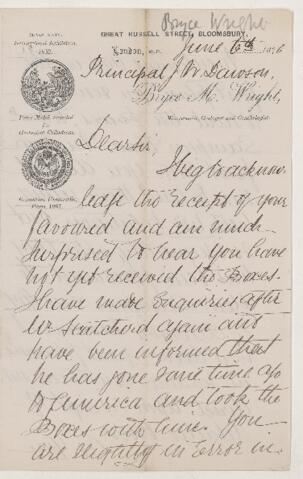 Bryce Wright
GREAT RUSSELL STREET, BLOOMSBURY,
LONDON, W.C.
June 6th 1876
Principal J W Dawson,
Bryce M. Wright,
Mineralogist, Geologist and Conchologist.
Prize Medal awarded for
Geological Collections.
Exposition Universelle,
Paris, 1867.
Dear Sir
I beg to acknow
ledge the receipt of your
favoured and am much
surprised to hear you have
not yet received the Boxes.
I have made Enquiries after
Mr Scatcherd again and
have been informed that
he has gone some time ago
to America and took the
Boxes with him. You
are slightly in Error in